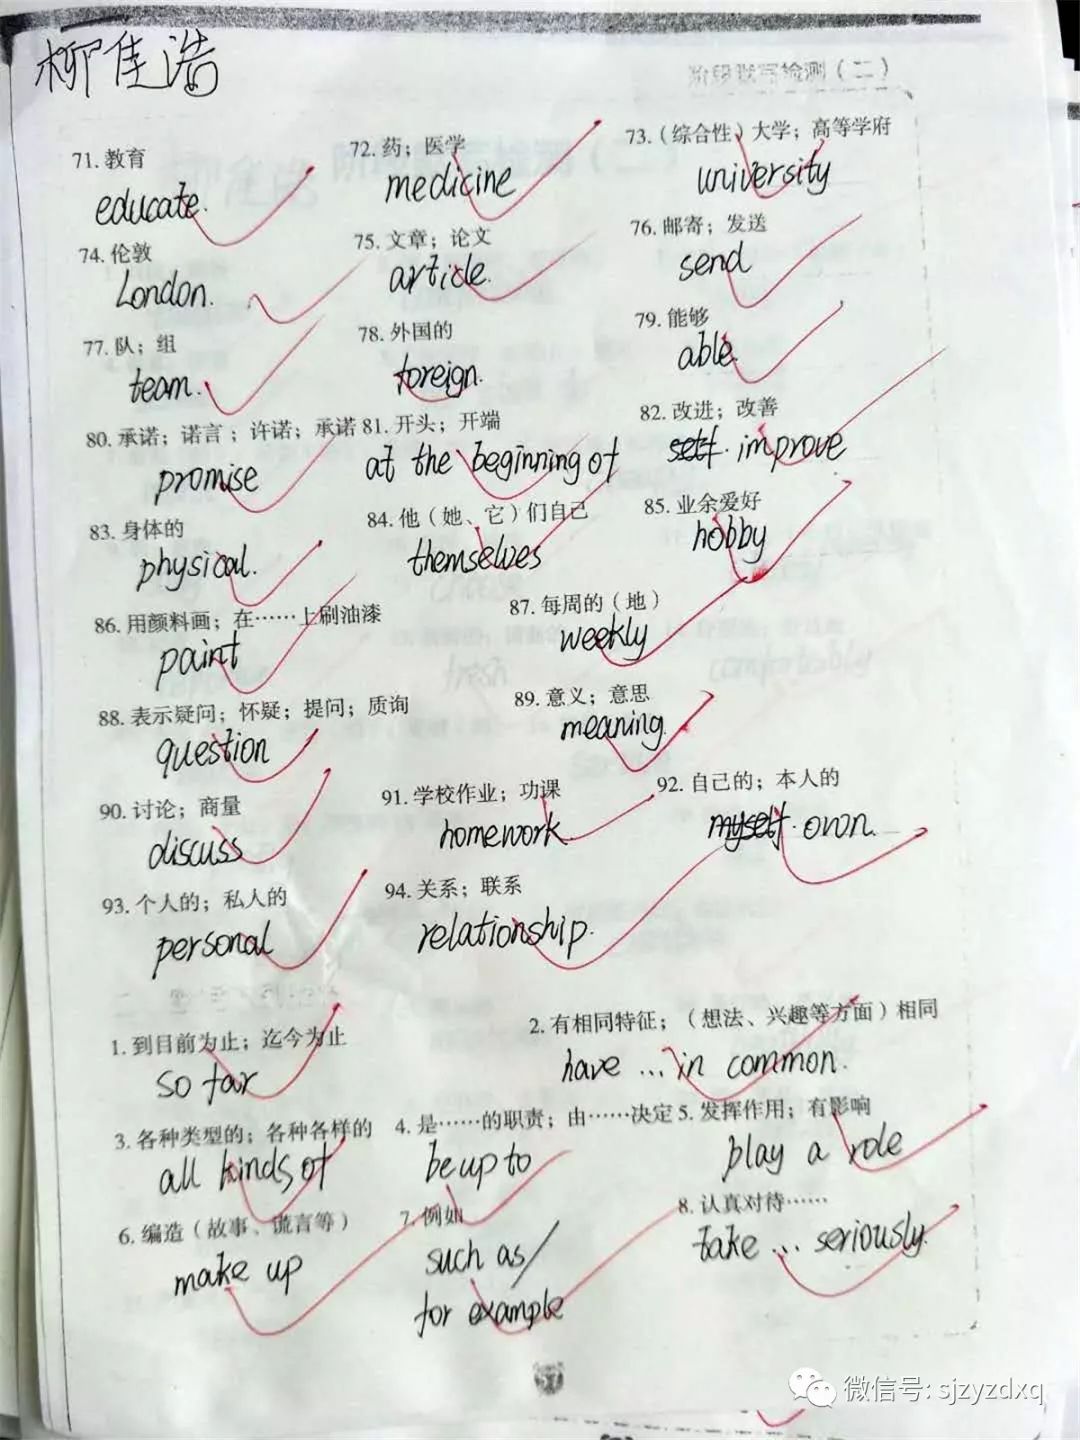 柳佳浩
阶段默写检测（二）
71. 教育 72. 药；医学 73.（综合性）大学；高等学府
educate. medicine university
74. 伦敦 75. 文章；论文 76. 邮寄；发送
London. article. send
77. 队；组 78. 外国的 79. 能够
team. foreign. able.
80. 承诺；诺言；许诺；承诺 81. 开头；开端 82. 改进；改善
promise at the beginning of improve
83. 身体的 84. 他（她、它）们自己 85. 业余爱好
physical. themselves hobby
86. 用颜料画；在……上刷油漆 87. 每周的（地）
paint weekly
88. 表示疑问；怀疑；提问；质询 89. 意义；意思
question meaning.
90. 讨论；商量 91. 学校作业；功课 92. 自己的；本人的
discuss homework myself. own.
93. 个人的；私人的 94. 关系；联系
personal relationship.
1. 到目前为止；迄今为止 2. 有相同特征；（想法、兴趣等方面）相同
so far have ... in common.
3. 各种类型的；各种各样的 4. 是……的职责；由……决定 5. 发挥作用；有影响
all kinds of be up to play a role
6. 编造（故事、谎言等） 7. 例如 8. 认真对待……
make up such as/ take ... seriously.
for example
微信号: sjzyzdxq